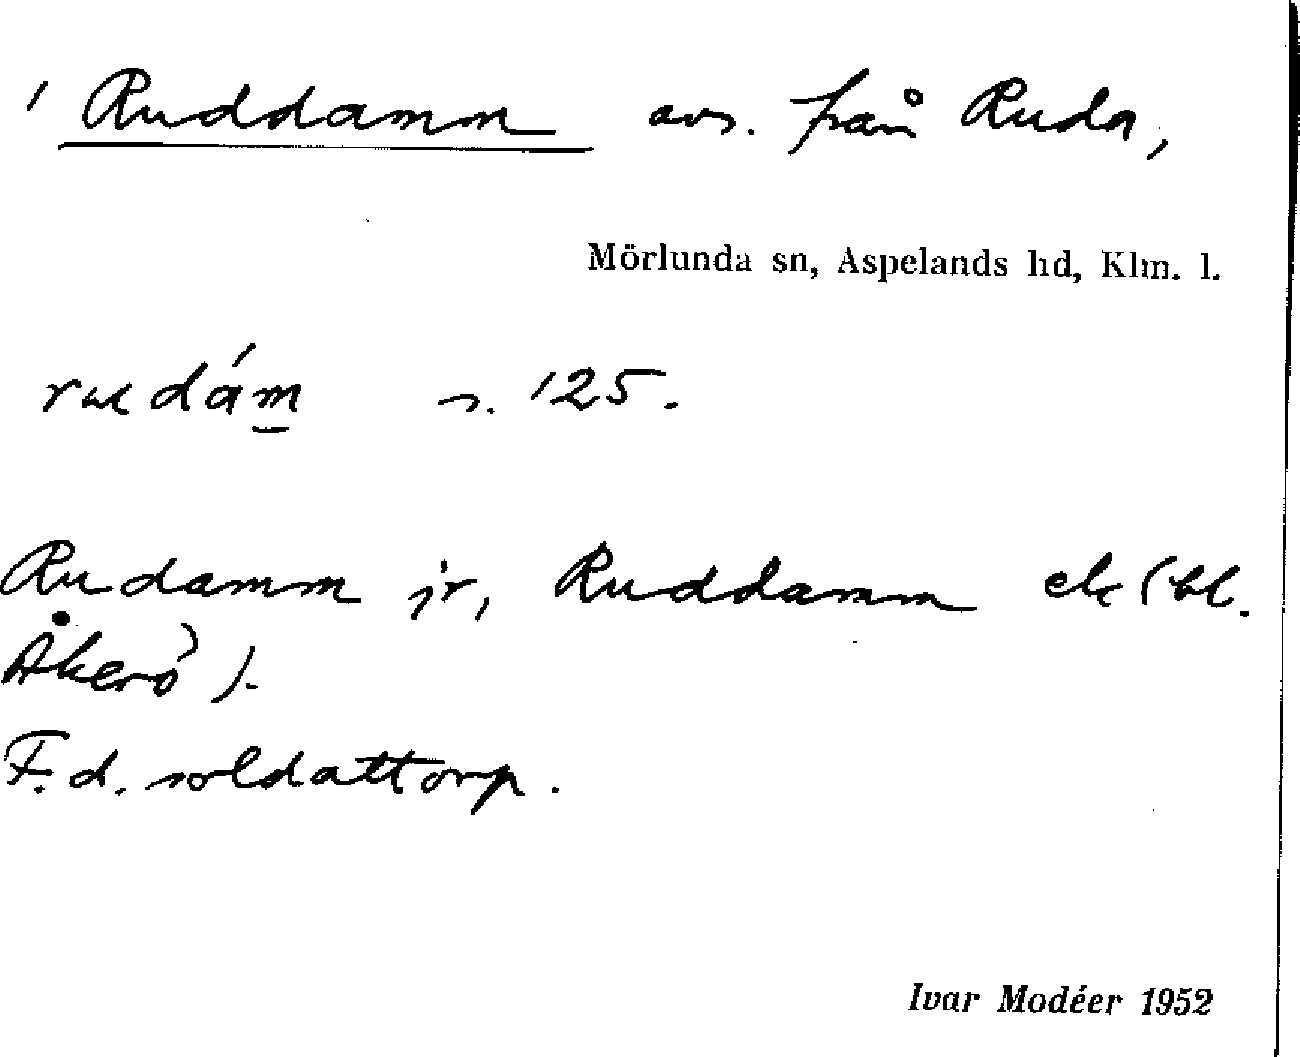 ' Ruddamm avs. från Ruda,
Mörlunda sn, Aspelands hd, Klm. l.
rudám s. 125.
Rudamm jr, Ruddamm ek (bl.
Åkerö).
F.d. soldattorp.
Ivar Modéer 1952